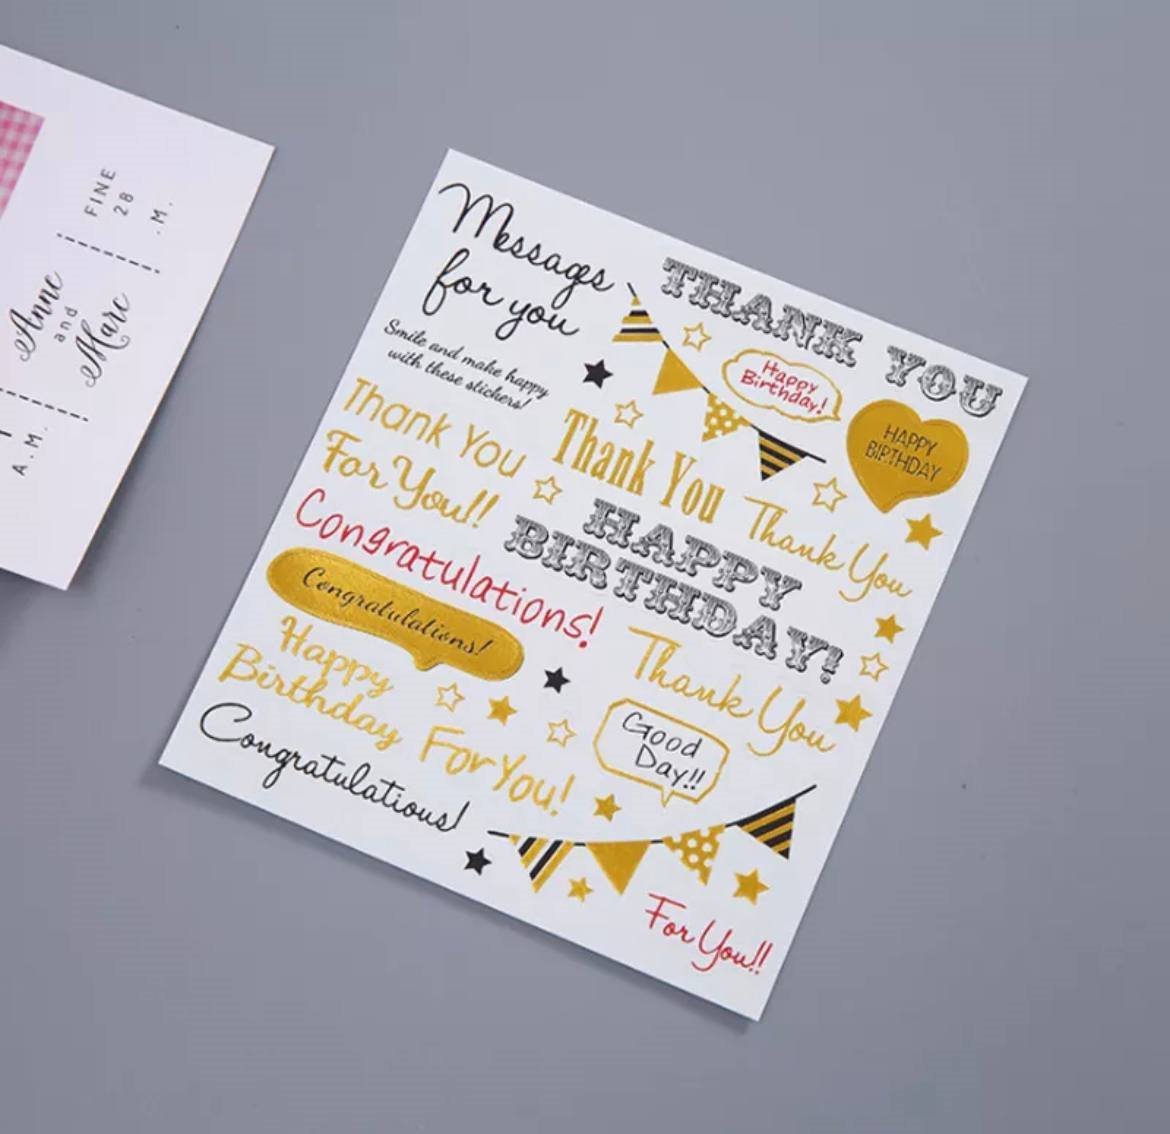 FINE
28
.M.
Anne
and
Marc
A.M.
Messages
for you
Smile and make happy
with these stickers!
THANK YOU
Happy
Birthday!
HAPPY
BIRTHDAY
Thank You
For You!!
Thank You
Thank You
Congratulations!
HAPPY
BIRTHDAY!
Congratulations!
Thank You
Happy
Birthday
For You!
Good
Day!!
Congratulations!
For You!!